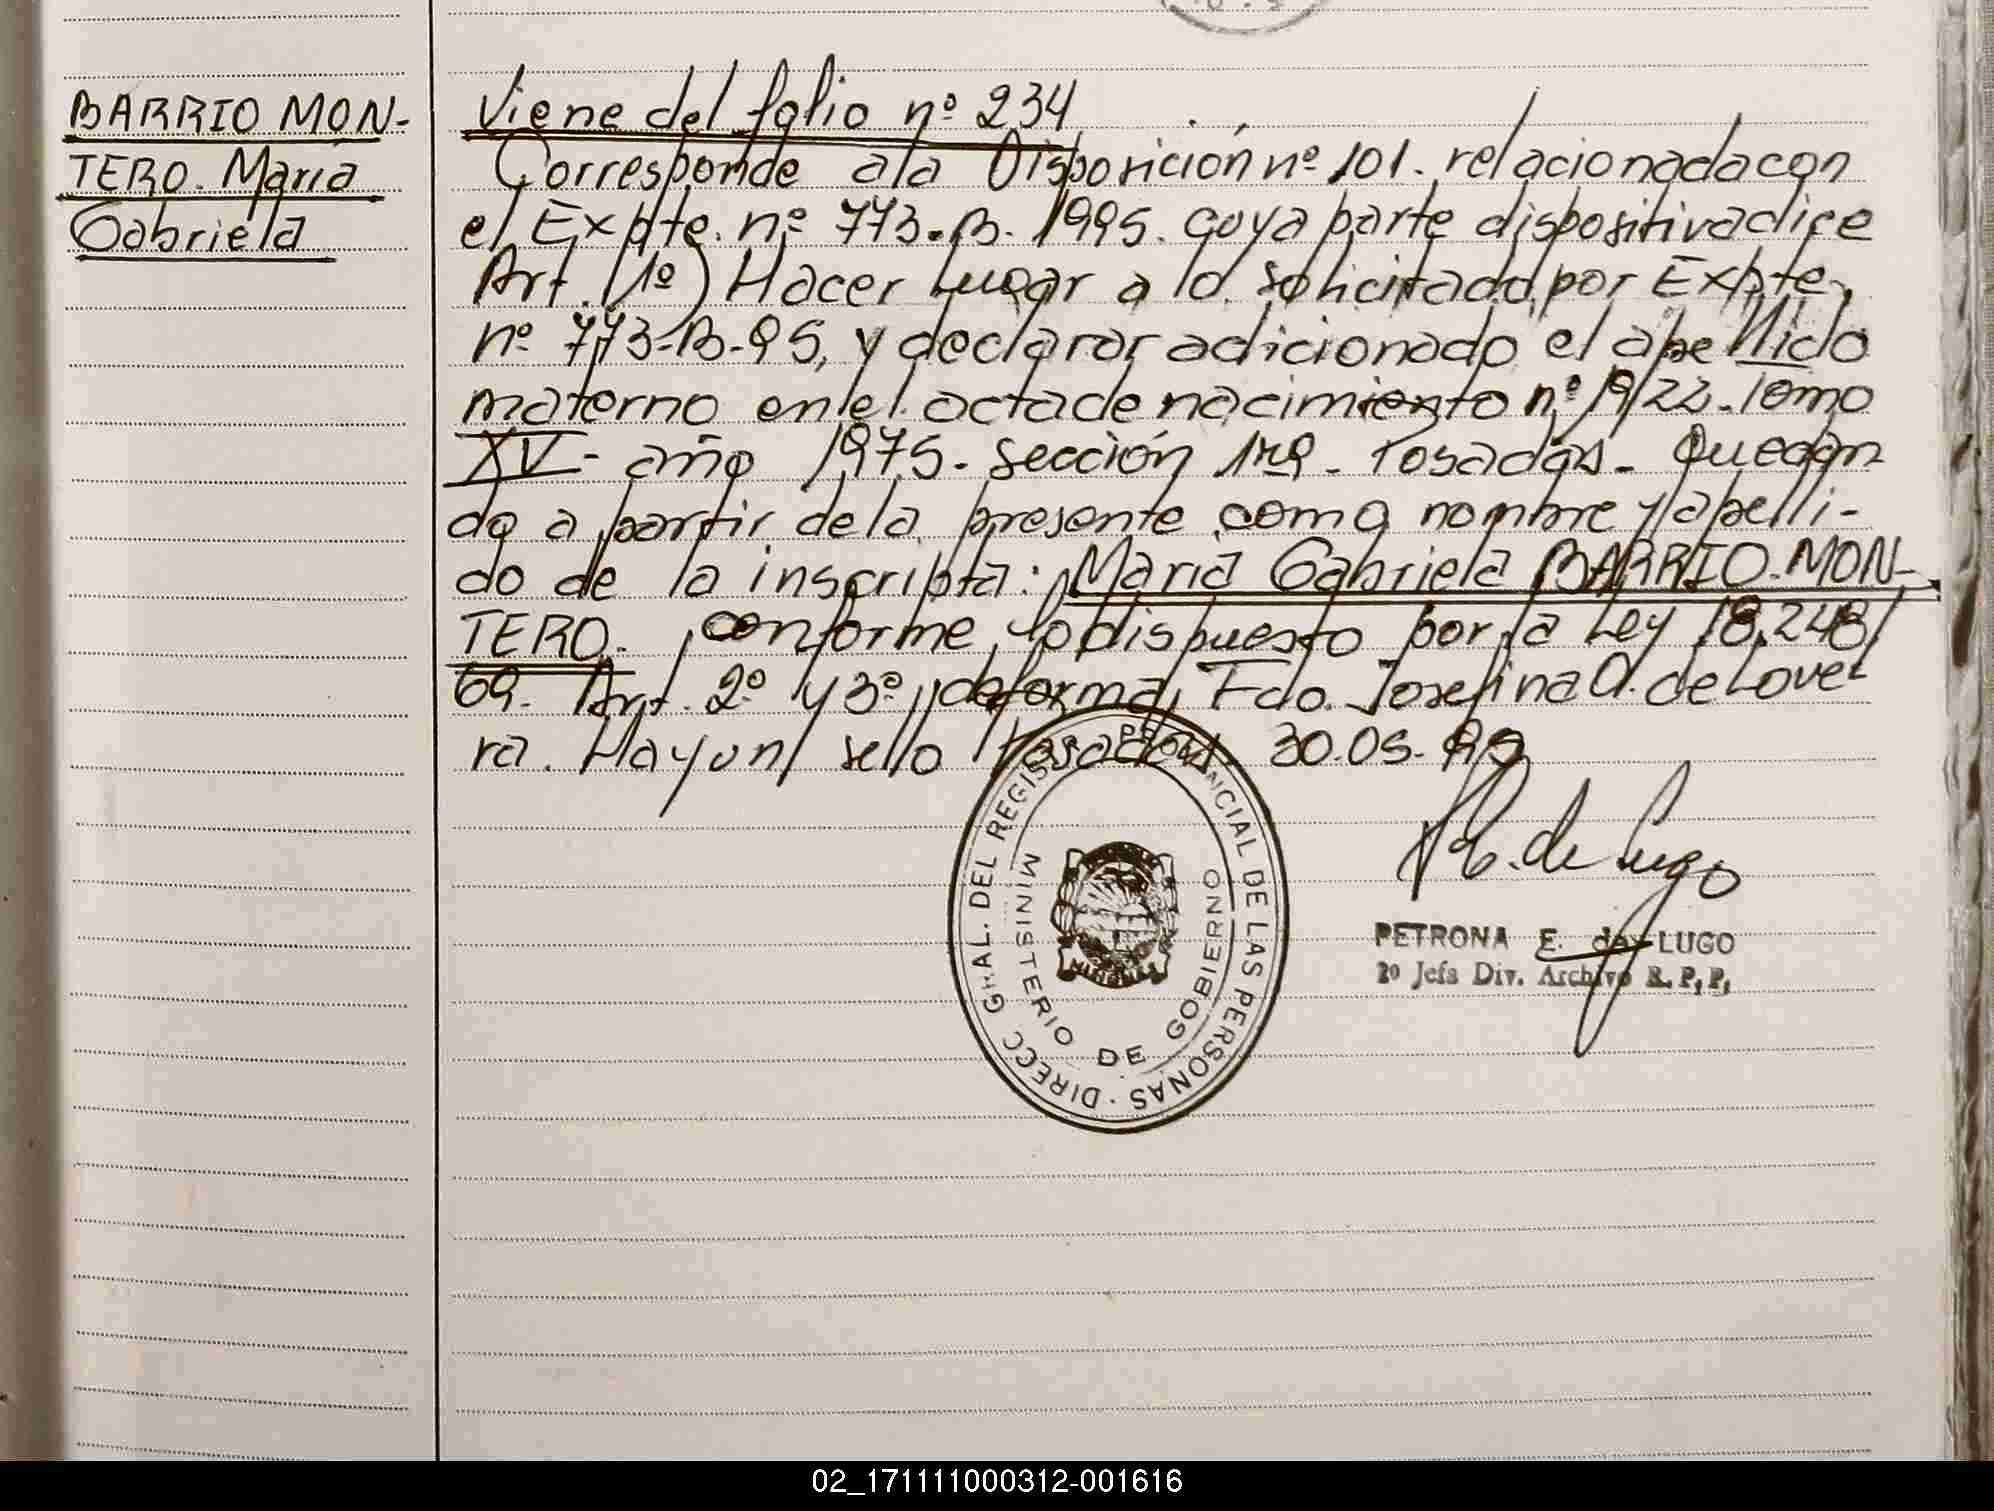 BARRIO MON-
TERO. María
Gabriela
Viene del folio nº 234
Corresponde a la Disposición nº 101. relacionada con
el Expte. nº 773.B. 1995. cuya parte dispositiva dice
Art. (1º) Hacer lugar a lo solicitado por Expte.
nº 773-B-95, y declarar adicionado el apellido
materno en el acta de nacimiento nº 1922. Tomo
XV- año 1975. Sección 1ra. Posadas. Quedan
do a partir de la presente como nombre y apelli-
do de la inscripta: María Gabriela BARRIO.MON-
TERO. conforme lo dispuesto por la Ley 18.248/
69. Art. 2º y 3º, de forma, Fdo. Josefina A. de Love-
ra. Hay un sello Posadas, 30.05.95
PETRONA E. de LUGO
2º Jefa Div. Archivo R. P. P.
DIRECC GRAL. DEL REGISTRO PROVINCIAL DE LAS PERSONAS
MINISTERIO DE GOBIERNO
MISIONES
02_171111000312-001616